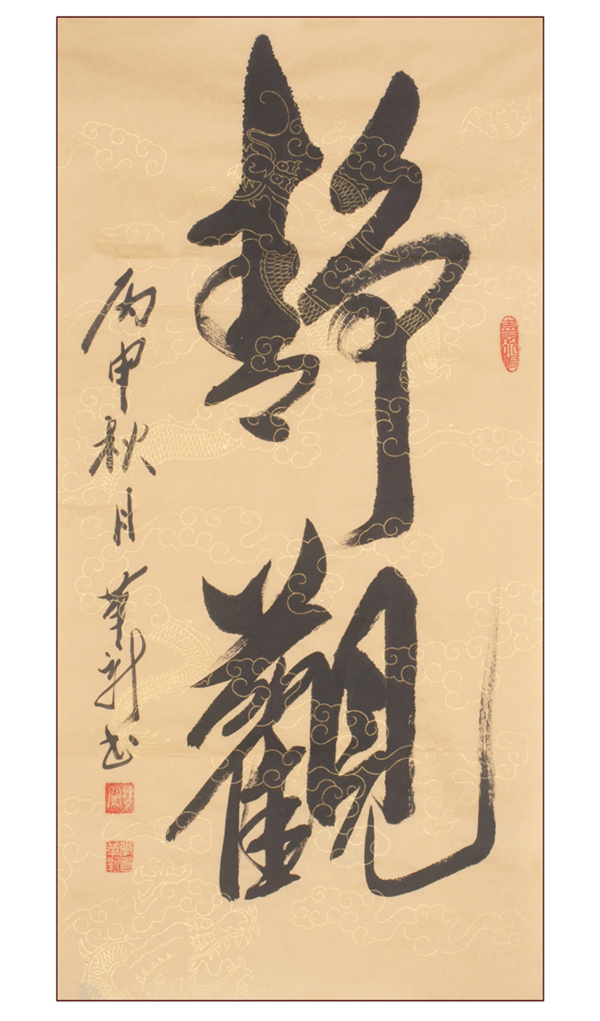 靜觀
丙申秋月華新書